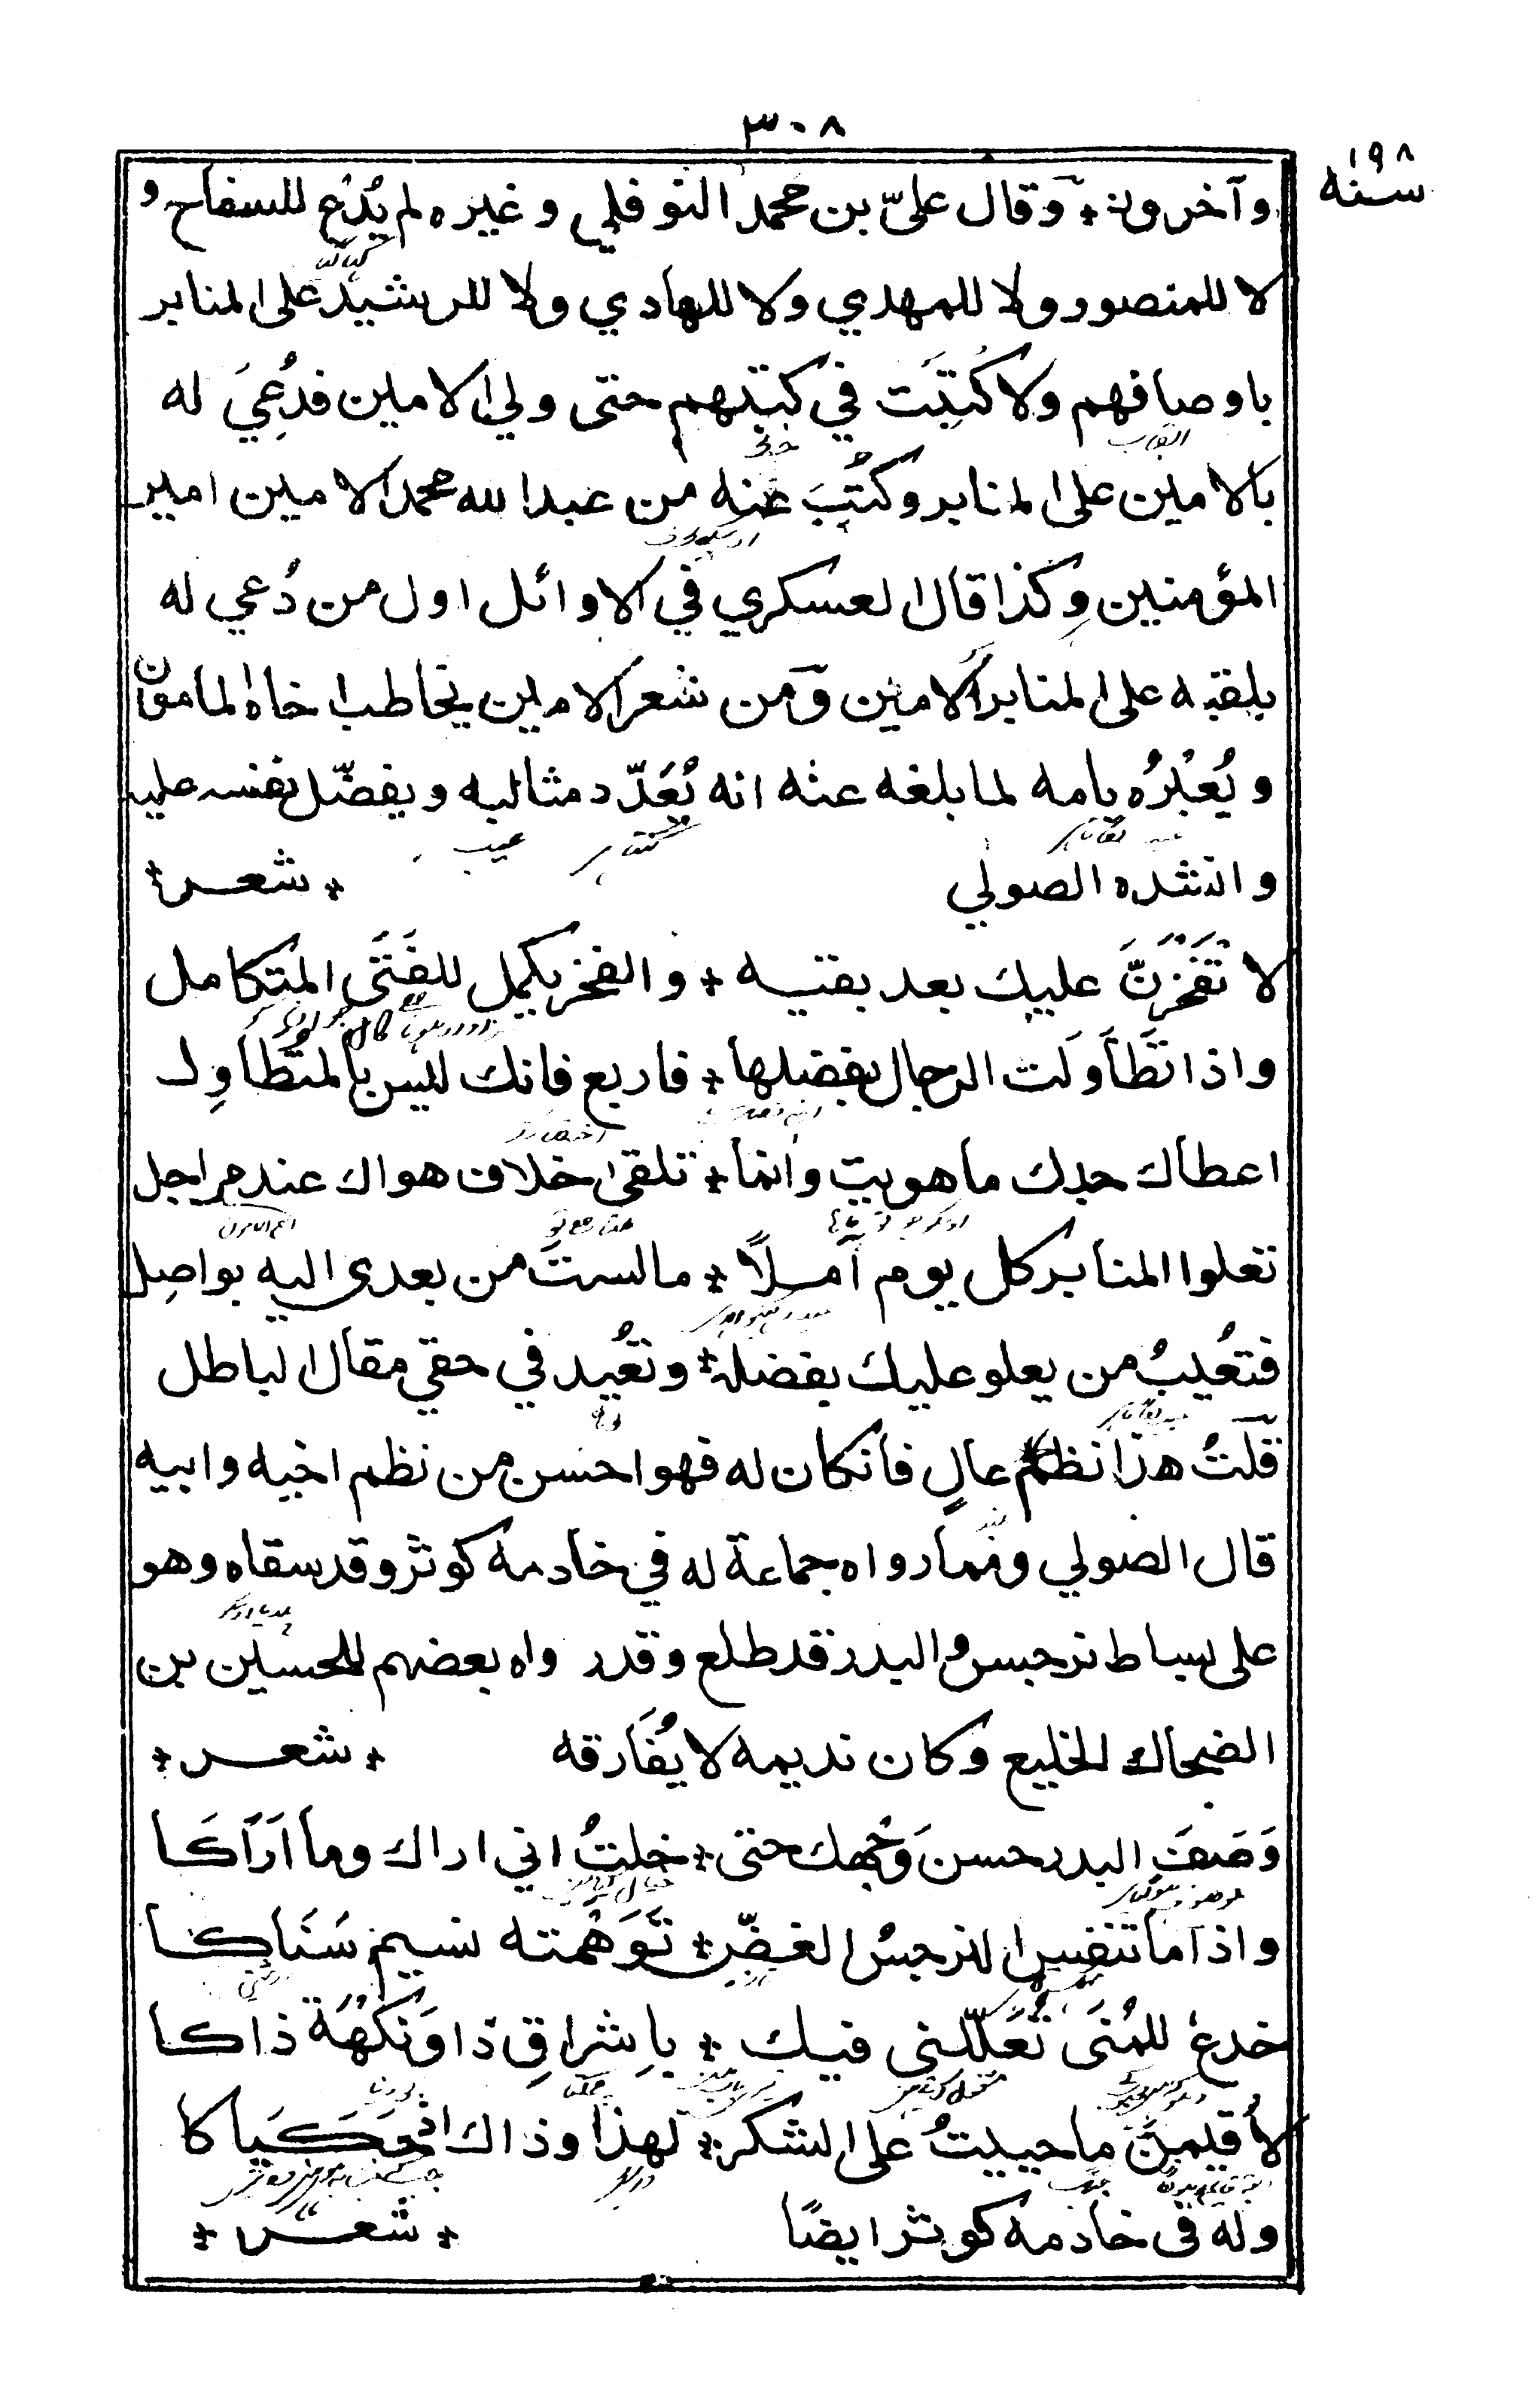 ٣٠٨
سنه ١٩٨
وآخرون ٭ وقال علىّ بن محمد النوفلي وغيره لم يُدْع للسفاح و
لا للمنصور ولا للمهدي ولا للهادي ولا للرشيد على المنابر
باوصافهم ولا كُتِبَت في كتبهم حتى ولي الامين فدُعِيَ له
بالامين على المنابر وكُتُبَ عنه من عبدالله محمد الامين امير
المؤمنين وكذا قال العسكري في الاوائل اول من دُعي له
بلقبه على المنابر الامين وَمن شعر الامين يخاطب اخاه المامون
ويُعْيرُه بامه لما بلغه عنه انه يُعَدّد مثالبه ويفضّل نفسه عليه
وانشده الصولي ٭ شعر ٭
لا تَفْخَرَنَّ عليك بعد بقيه ٭ والفخر يكمل للفَتَى المتكامل
واذا تَطَاوَلَت الرجال بفضلها ٭ فاربع فانك ليس بالمتَطاوِل
اعطاك جدك ما هويت وانما ٭ تلقى خلاف هواك عند مراجل
تعلوا المنابر كل يوم آملاً ٭ ما لستَ من بعدى اليه بواصِل
فتعُيبُ من يعلو عليك بفضله ٭ وتعُيد في حقي مقال الباطل
قلتُ هذا نظم عالٍ فانكان له فهو احسن من نظم اخيه وابيه
قال الصولي ومما رواه جماعة له في خادمه كوثر وقد سقاه وهو
على بساط نرجس والبدر قد طلع وقد رواه بعضهم للحسين بن
الضحاك الخليع وكان نديمه لا يُفَارقه ٭ شعر ٭
وَصَفَ البدر حسنَ وَجْهك حتى ٭ خِلتُ اني اراك وما اَرَاكَا
واذا ما تنفس النرجسُ الغضّ ٭ تَوَهَّمته نسيم سَنَاكا
خدعٌ للمُنَى تُعَلّلنى فيك ٭ باِشراقِ ذا وَنَكْهَة ذاكا
لاُقيمنَّ ما حييتُ على الشكر ٭ لهذا وذاك اذ حَكَيَاكا
وله فى خادمه كوثر ايضًا ٭ شعر ٭